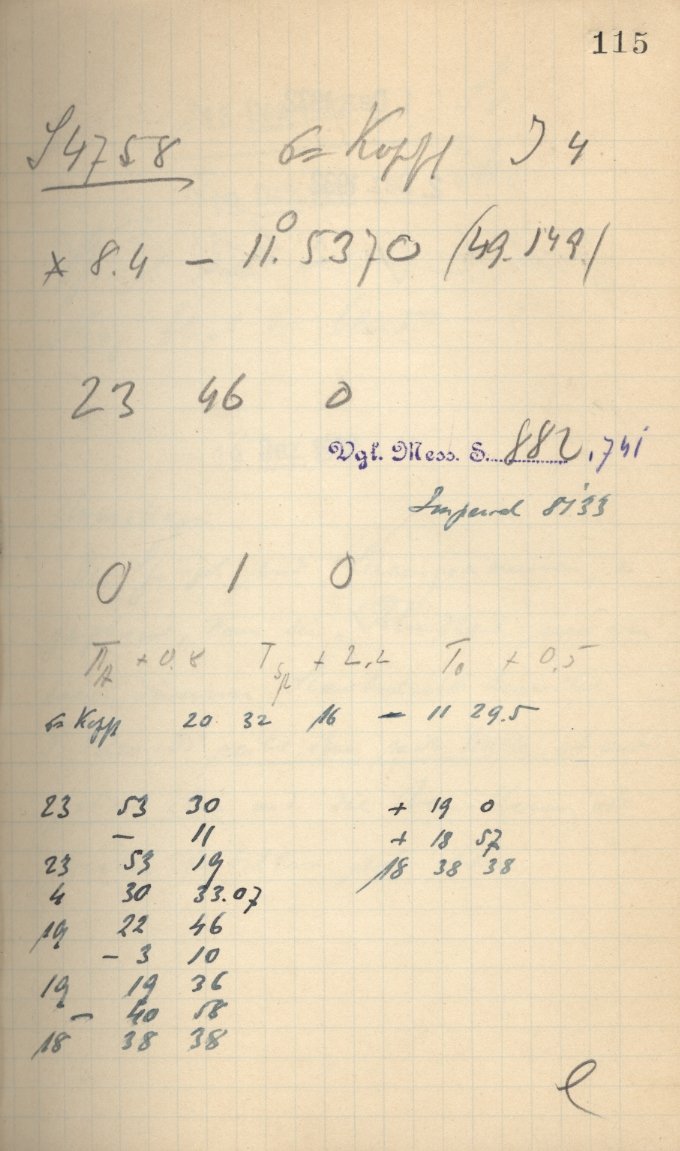 115
S 4758 σ= Kopff J 4
* 8.4 – 11.°5370 (49.149)
23 46 0
Vgl. Mess. S. 882, 741
8133
0 1 0
T_A + 0.8 T_Sp + 2.2 T_0 + 0.5
σ= Kopff 20 32 16 – 11 29.5
23 53 30 + 19 0
– 11 + 18 57
23 53 19 18 38 38
4 30 33.07
19 22 46
– 3 10
19 19 36
– 40 58
18 38 38